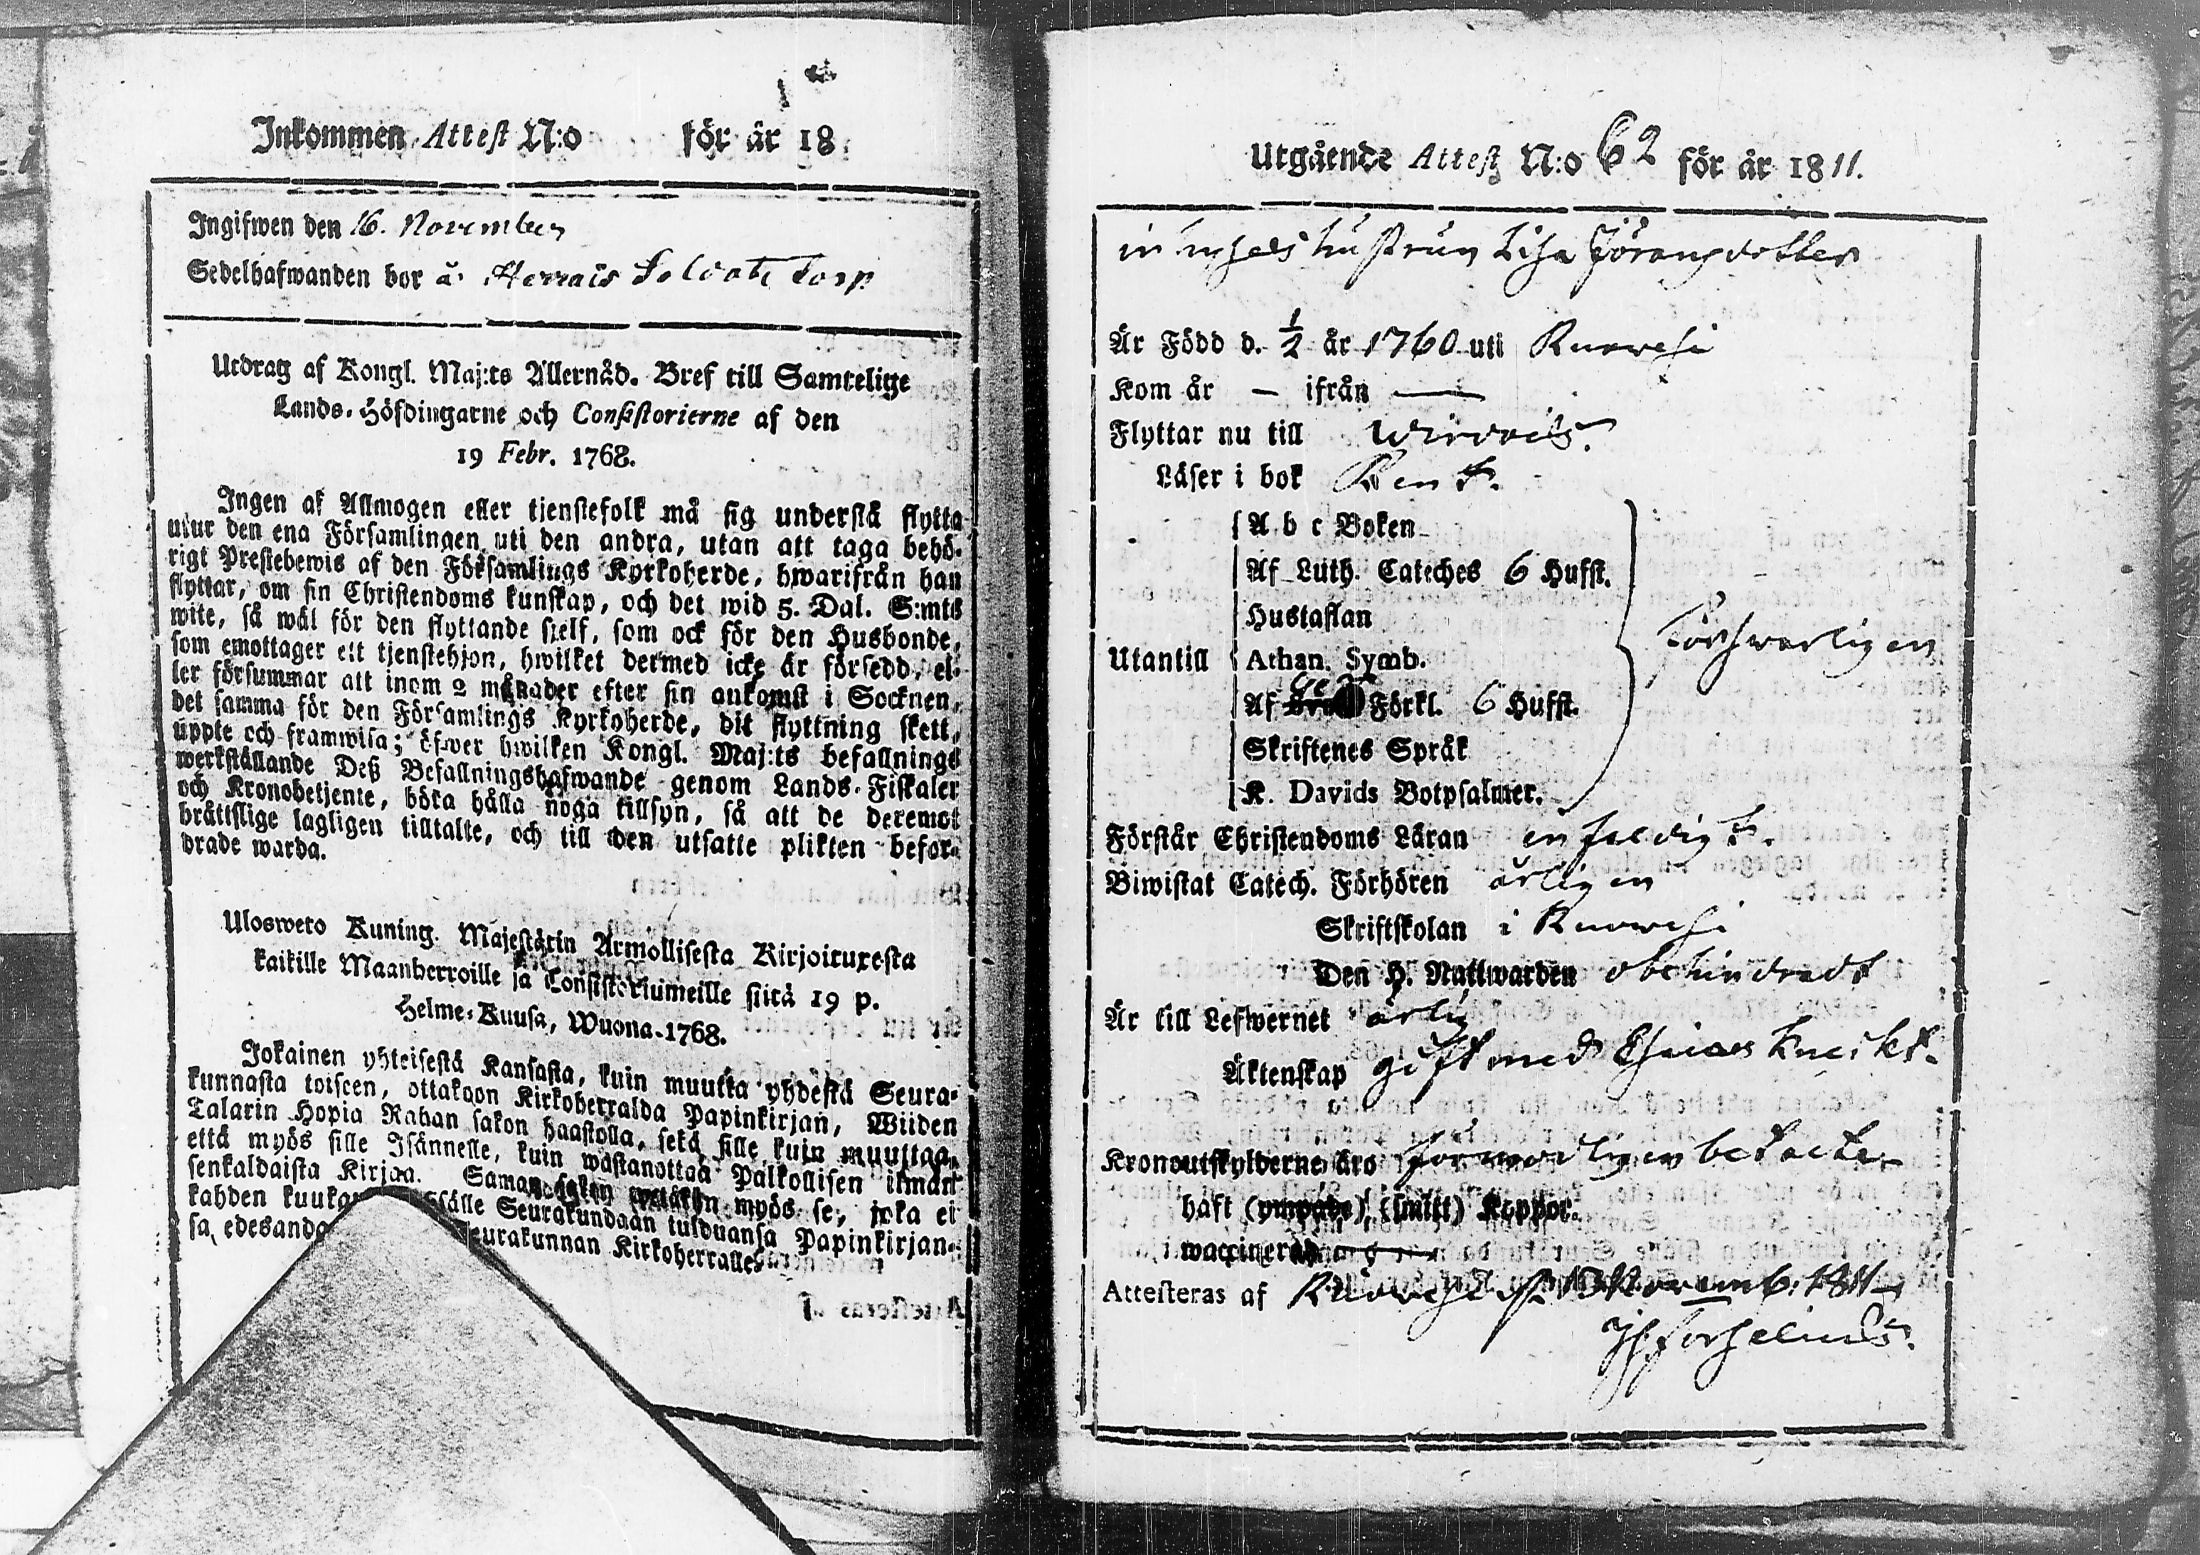 Inkommen Attest N:o för år 18
Ingifwen den 16. November
Sedelhafwanden bor å Herrais Soldate torp
Utdrag af Kongl. Maj:ts Allernåd. Bref till Samtelige
Lands-Höfdingarne och Consistorierne af den
19 Febr. 1768.
Ingen af Allmogen eller tjenstefolk må sig understå flytta
utur den ena Församlingen uti den andra, utan att taga behö-
rigt Prestebewis af den Församlings Kyrkoherde, hwarifrån han
flyttar, om sin Christendoms kunskap, och det wid 5. Dal. S:mts
wite, så wäl för den flyttande sjelf, som ock för den Husbonde,
som emottager ett tjenstehjon, hwilket dermed icke är försedd, el-
ler försummar att inom 2 månader efter sin ankomst i Socknen,
det samma för den Församlings Kyrkoherde, dit flyttning skett,
uppte och framwisa; öfwer hwilken Kongl. Maj:ts befallnings
werkställande Deß Befallningshafwande genom Lands-Fiskaler
och Kronobetjente, böra hålla noga tillsyn, så att de deremot
bråttslige lagligen tilltalte, och till den utsatte plikten befor-
drade warda.
Ulosweto Kuning. Majestätin Armollisesta Kirjoituxesta
kaikille Maanherroille ja Consistoriumeille siitä 19 p.
Helme-Kuusa, Wuona 1768.
Jokainen yhteisestä Kansasta, kuin muutta yhdestä Seura-
kunnasta toiseen, ottakoon Kirkoherralda Papinkirjan, Wiiden
Talarin Hopia Rahan sakon haastolla, sekä sille kuin muuttaa,
että myös sille Isännelle, kuin wastanottaa Palkollisen ilman
senkaldaista Kirjaa. Saman sakon wetäkön myös se, joka ei
kahden kuukau sisälle Seurakundaan tulduansa Papinkirjan-
sa, edesanda eurakunnan Kirkoherralle.
Utgående Attest N:o 62 för år 1811.
hustrun Lisa Jöransdotter
Är Född d. 1/2 år 1760 uti Ruowesi
Kom år — ifrån —
Flyttar nu till Wirdois.
Läser i bok Rent.
A b c Boken
Af Luth. Cateches 6 Hufst.
Hustaflan
Utantill Athan. Symb. Förswarligen
Af Förkl. 6 Hufst.
Skriftenes Språk
K. Davids Botpsalmer.
Förstår Christendoms Läran enfaldigt.
Biwistat Catech. Förhören årligen
Skriftskolan i Ruowesi
Den H. Nattwarden obehindradt
Är till Lefwernet ärlig
Äktenskap gift med Esaias Kneckt.
Kronoutskylderne äro förswarligen betalte
haft (ympade) (smitt) Koppor.
waccinerad
Attesteras af Ruowesi d. 13 Novemb. 1811
Forselius.